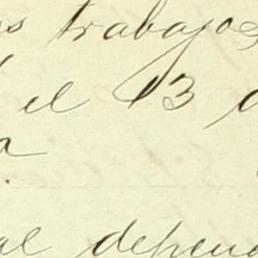 trabajos
el 13
a
al depen